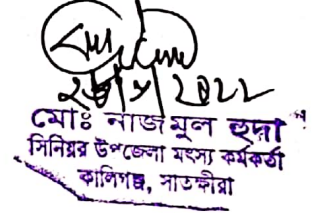 মোঃ নাজমুল হুদা
সিনিয়র উপজেলা মৎস্য কর্মকর্তা
কালিগঞ্জ, সাতক্ষীরা